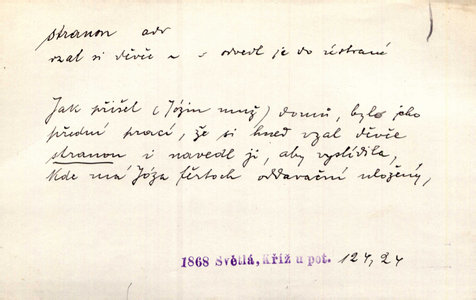 stranou adv
vzal si děvče a odvedl je do ústraní
Jak přišel (Józin muž) domů, bylo jeho
přední prací, že si hned vzal děvče
stranou i navedl ji, aby vyslídila,
kde má Józa fěrtoch oddavační uložený,
1868 Světlá, Kříž u pot. 124, 24